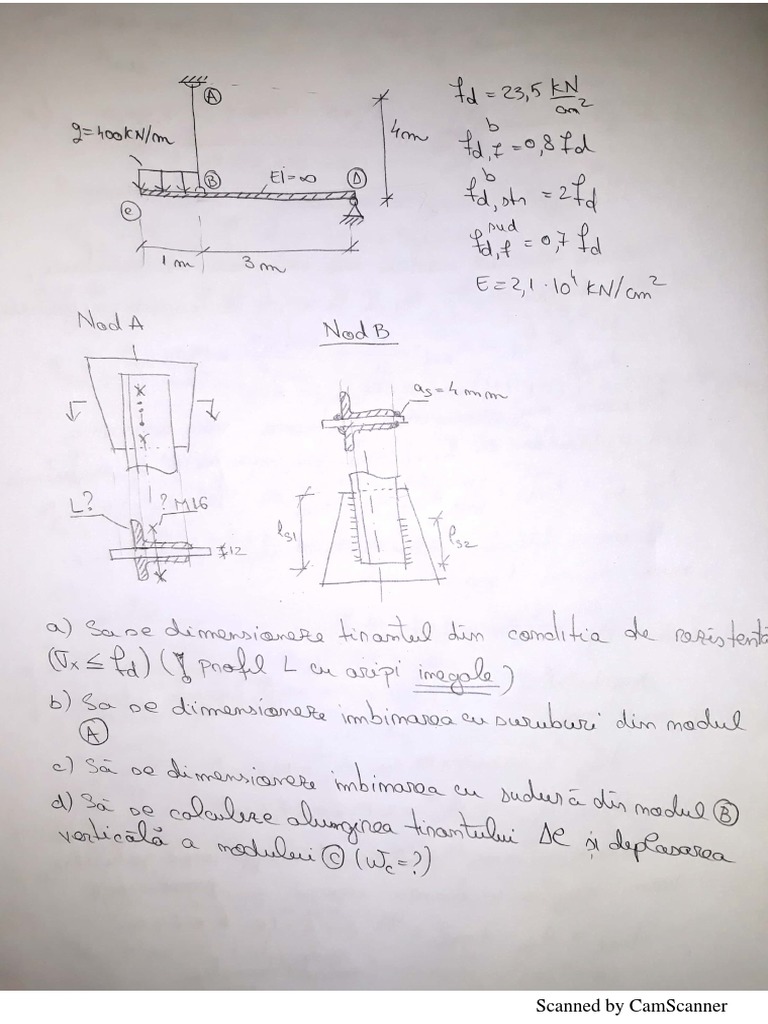 A
fd = 23,5 kN/cm²
g=400KN/m
4m
b
fd,f = 0,8 fd
B
EI=∞
D
b
fd,str = 2fd
C
sud
fd,f = 0,7 fd
1m
3m
E = 2,1 · 10⁴ KN/cm²
Nod A
Nod B
as=4mm
L?
? M16
ls1
ls2
≠12
a) Sa se dimensioneze tirantul din conditia de rezistentă
(σx ≤ fd) (! profil L cu aripi inegale)
b) Sa se dimensioneze imbinarea cu suruburi din nodul
A
c) Să se dimensioneze imbinarea cu sudură din nodul B
d) Să se calculeze alungirea tirantului Δl și deplasarea
verticală a nodului C (wc=?)
Scanned by CamScanner